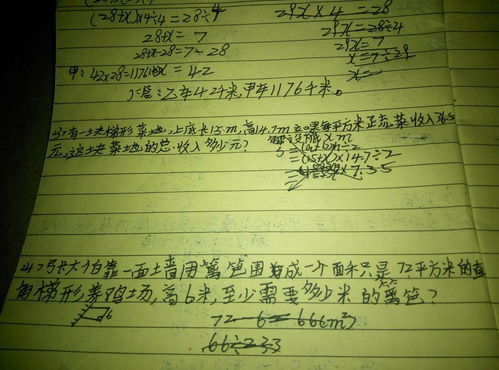 (28+x)×4÷4=28÷4
28+x=7
28+x-28=7-28
甲:42×28=1176 x=42
答:乙车42千米,甲车1176千米。
29x×4=28
29x=28÷4
29x=7
x=7÷29
x=
有一块梯形菜地,上底长15m,高14.7m 如果每平方米正荒菜收入36.5
元,这土夹菜地的总收入多少元?
解设 x m
=(15+x)×14.7÷2
×7.35
弓长大伯靠一面土墙用篱笆围成一个面积只是72平方米的直
角梯形养鸡场,高6米,至少需要多少米的篱笆?
6
72-6=666m²
66÷2=33